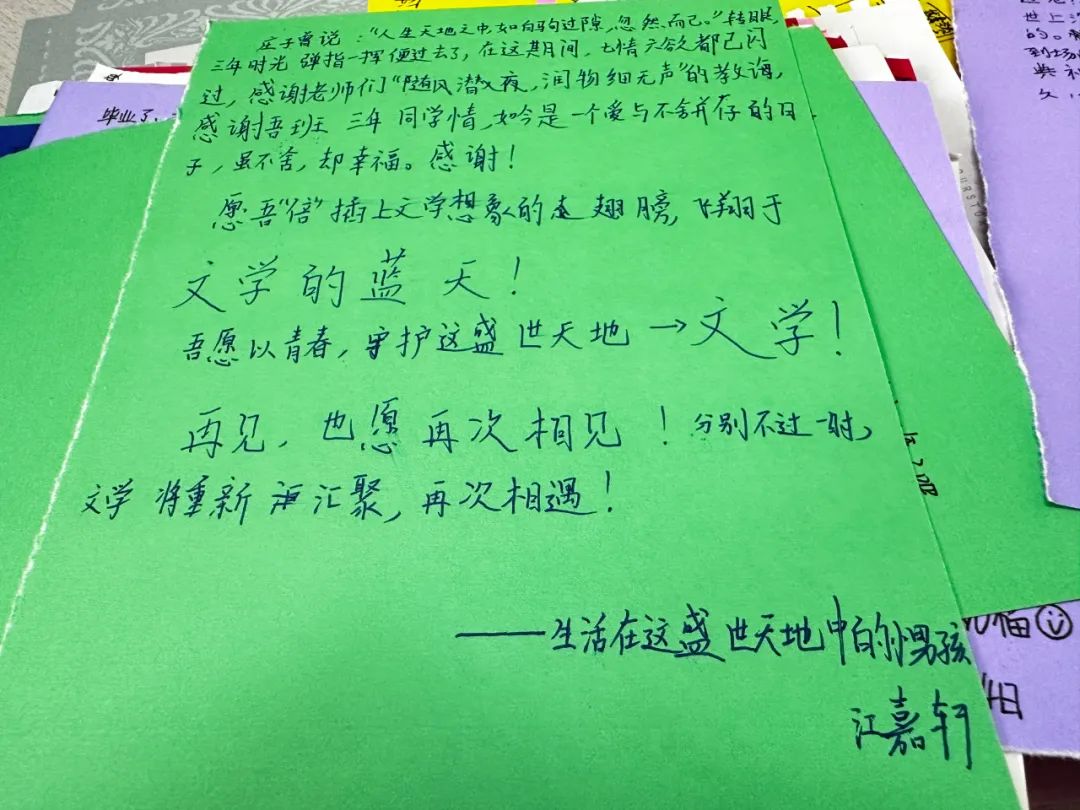 庄子曾说："人生天地之中,如白驹过隙,忽然而已。"转眼,
三年时光 弹指一挥便过去了,在这期间,七情六欲都已闪
过,感谢老师们"随风潜入夜,润物细无声"的教诲,
感谢吾班 三年同学情,如今是一个爱与不舍并存的日
子,虽不舍,却幸福。感谢!
愿吾"倍"插上文学想象的 翅膀,飞翔于
文学的蓝天!
吾愿以青春,守护这盛世天地→文学!
再见,也愿再次相见!分别不过一时,
文学 将重新 汇聚,再次相遇!
——生活在这盛世天地中的男孩
江嘉轩
毕业了
福